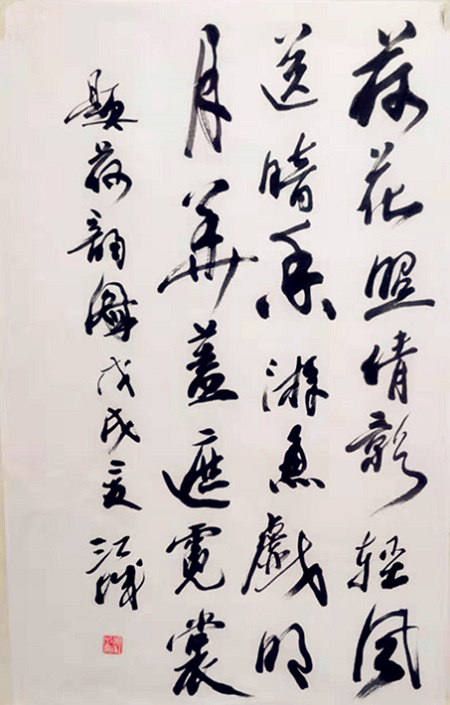 荷花照倩影轻风
送暗香游鱼戏明
月华盖遮霓裳
题荷韵图戊戌夏 江城